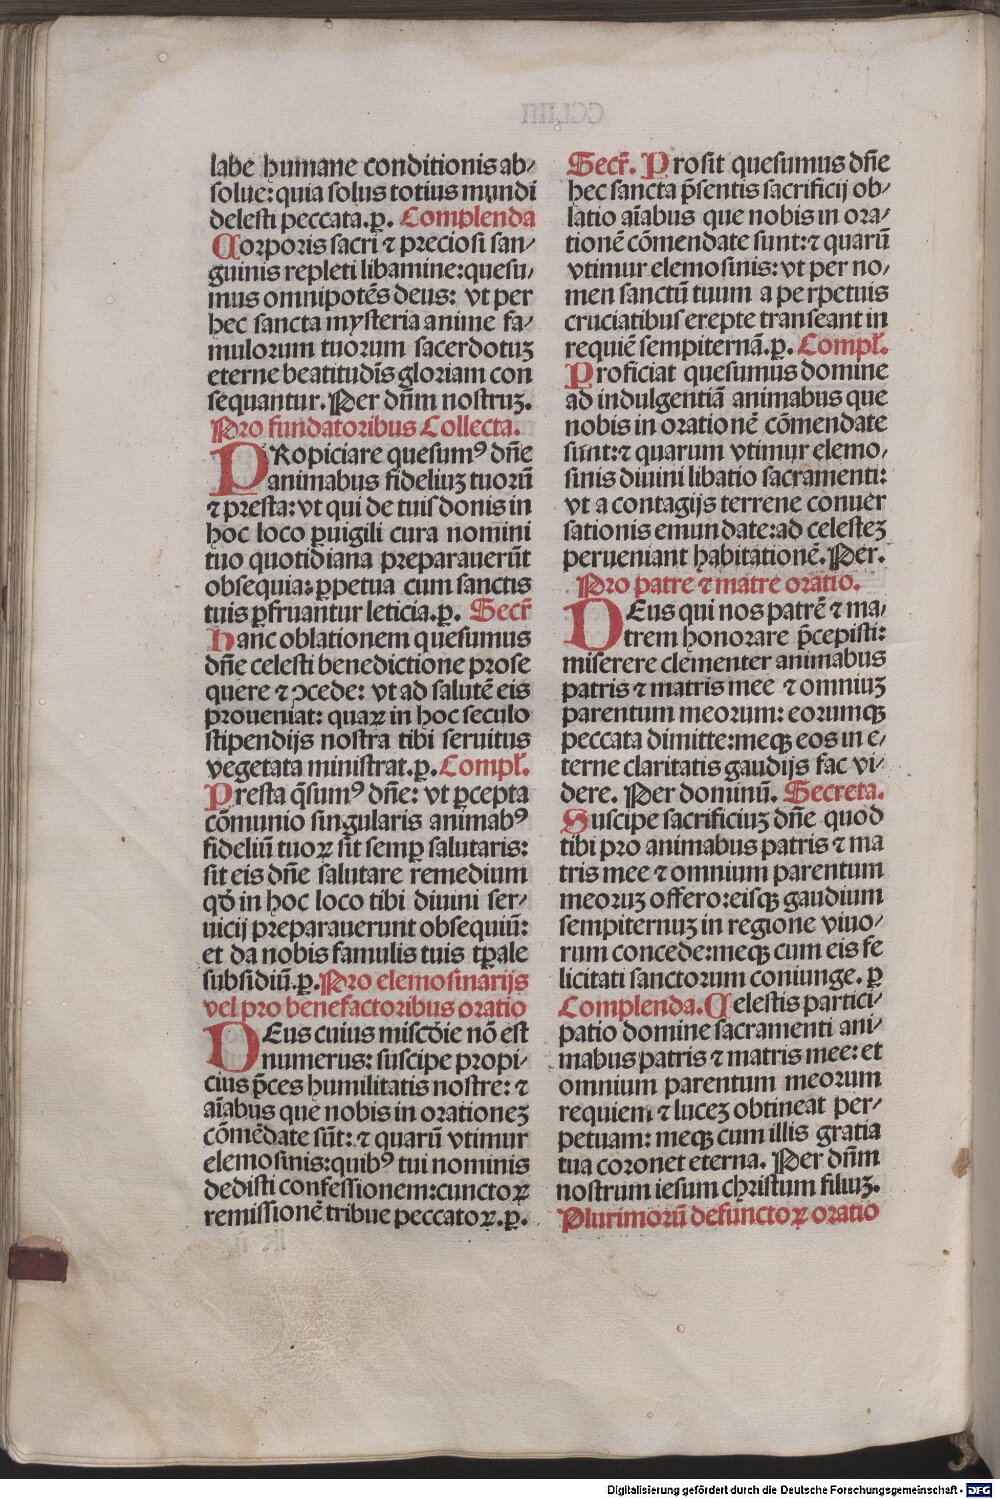 labe humane conditionis ab⸗
solue: quia solus totius mundi
delesti peccata. p̲. Complenda
Corporis sacri ⁊ preciosi san⸗
guinis repleti libamine: quesu⸗
mus omnipotēs deus: vt per
hec sancta mysteria anime fa⸗
mulorum tuorum sacerdotuꝫ
eterne beatitudīs gloriam con
sequantur. Per dn̄m nostruꝫ.
Pro fundatoribus Collecta.
PRopiciare quesumꝰ dn̄e
animabus fideliuꝫ tuorū
⁊ presta: vt qui de tuis donis in
hoc loco ꝑuigili cura nomini
tuo quotidiana preparauerūt
obsequia: ꝑpetua cum sanctis
tuis ꝑfruantur leticia. p̲. Secr̄
Hanc oblationem quesumus
dn̄e celesti benedictione prose
quere ⁊ ꝯcede: vt ad salutē eis
proueniat: quaꝝ in hoc seculo
stipendijs nostra tibi seruitus
vegetata ministrat. p̲. Compl̄.
Presta q̄sumꝰ dn̄e: vt ꝑcepta
cōmunio singularis animabꝰ
fideliū tuoꝝ sit semꝑ salutaris:
sit eis dn̄e salutare remedium
qď in hoc loco tibi diuini ser⸗
uicij preparauerunt obsequiū:
et da nobis famulis tuis tꝑale
subsidiū. p̲. Pro elemosinarijs
vel pro benefactoribus oratio
DEus cuius miscďie nō est
numerus: suscipe propi⸗
cius p̄ces humilitatis nostre: ⁊
aīabus que nobis in orationeꝫ
cōmēdate sūt: ⁊ quarū vtimur
elemosinis: quibꝰ tui nominis
dedisti confessionem: cunctoꝝ
remissionē tribue peccatoꝝ. p̲.
Secr̄. Prosit quesumus dn̄e
hec sancta p̄sentis sacrificij ob⸗
latio aīabus que nobis in ora⸗
tionē cōmendate sunt: ⁊ quarū
vtimur elemosinis: vt per no⸗
men sanctū tuum a perpetuis
cruciatibus erepte transeant in
requiē sempiternā. p̲. Compl̄.
Proficiat quesumus domine
ad indulgentiā animabus que
nobis in orationē cōmendate
sunt: ⁊ quarum vtimur elemo⸗
sinis diuini libatio sacramenti:
vt a contagijs terrene conuer
sationis emundate: ad celesteꝫ
perueniant habitationē. Per.
Pro patre ⁊ matre oratio.
DEus qui nos patrē ⁊ ma⸗
trem honorare p̄cepisti:
miserere clementer animabus
patris ⁊ matris mee ⁊ omniuꝫ
parentum meorum: eorumqꝫ
peccata dimitte: meqꝫ eos in e⸗
terne claritatis gaudijs fac vi⸗
dere. Per dominū. Secreta.
Suscipe sacrificiuꝫ dn̄e quod
tibi pro animabus patris ⁊ ma
tris mee ⁊ omnium parentum
meoruꝫ offero: eisqꝫ gaudium
sempiternuꝫ in regione viuo⸗
rum concede: meqꝫ cum eis fe
licitati sanctorum coniunge. p̲
Complenda. Celestis partici⸗
patio domine sacramenti ani⸗
mabus patris ⁊ matris mee: et
omnium parentum meorum
requiem ⁊ luceꝫ obtineat per⸗
petuam: meqꝫ cum illis gratia
tua coronet eterna. Per dn̄m
nostrum iesum christum filiuꝫ.
Plurimorū defunctoꝝ oratio
Digitalisierung gefördert durch die Deutsche Forschungsgemeinschaft - DFG